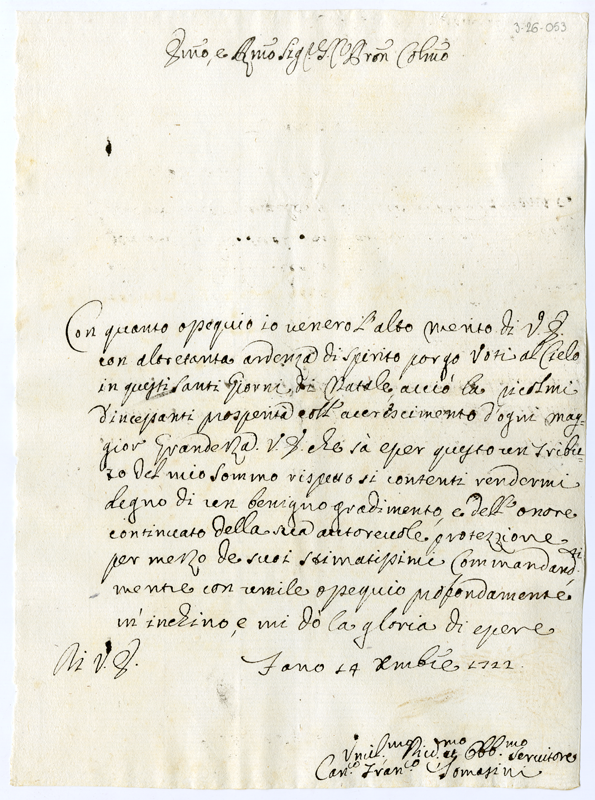 3-26-053
Illmo, e Rmo Sigr Sigr Pron Colmo
Con quanto ossequio io venero l'alto merito di V. S.
con altretanta ardenza di spirito porgo Voti al Cielo
in questi Santi Giorni di Natale, acciò la ricolmi
d'incessanti prosperità coll' accrescimento d'ogni mag-
gior Grandezza. V. S. che sà esser questo un tribu-
to del mio sommo rispetto si contenti rendermi
degno di un benigno gradimento, e dell' onore
continuato della sua autorevole protezzione
per mezzo de suoi stimatissimi Commandamti
mentre con umile ossequio profondamente
m' inchino, e mi dò la gloria di essere
Di V. S.
Fano 14 Xmbre 1722
Umilmo Devmo et Obbmo Servitore
Canco Franco Tomasini